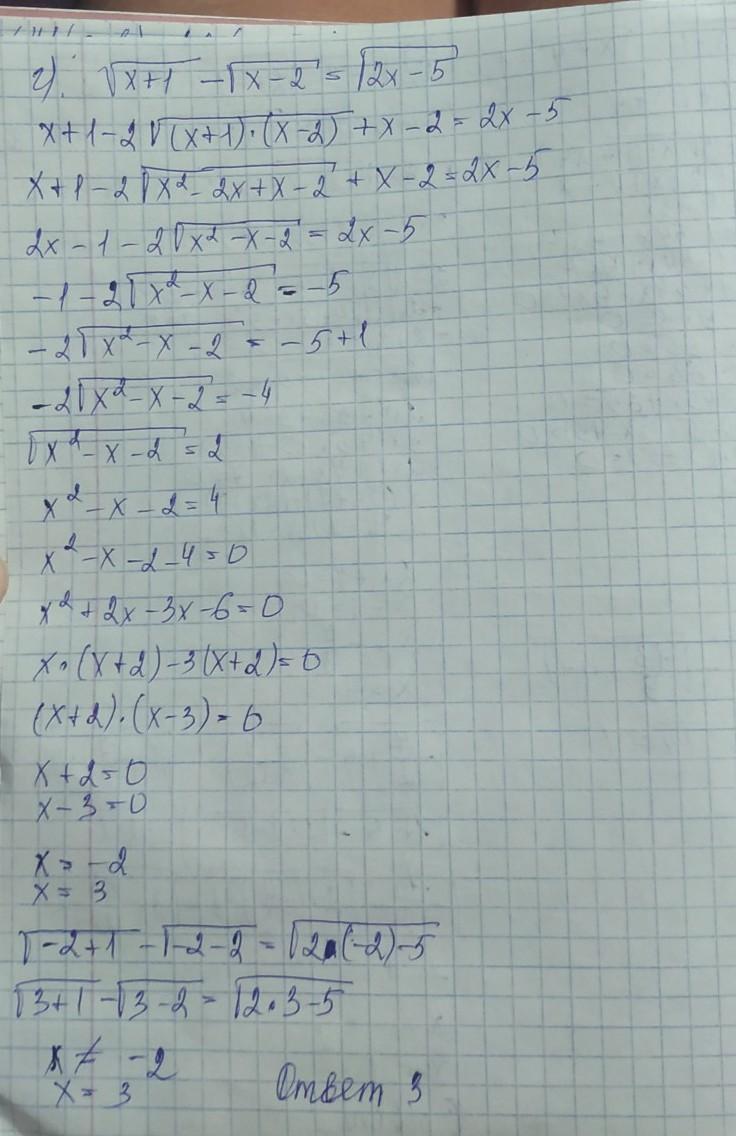 г). √(x+1) - √(x-2) = √(2x-5)
x+1-2√((x+1)·(x-2)) + x-2 = 2x-5
x+1-2√(x²-2x+x-2) + x-2 = 2x-5
2x-1-2√(x²-x-2) = 2x-5
-1-2√(x²-x-2) = -5
-2√(x²-x-2) = -5+1
-2√(x²-x-2) = -4
√(x²-x-2) = 2
x²-x-2=4
x²-x-2-4=0
x²+2x-3x-6=0
x·(x+2)-3(x+2)=0
(x+2)·(x-3)=0
x+2=0
x-3=0
x=-2
x=3
√(-2+1) - √(-2-2) = √(2·(-2)-5)
√(3+1) - √(3-2) = √(2·3-5)
x≠ -2
x= 3 Ответ 3